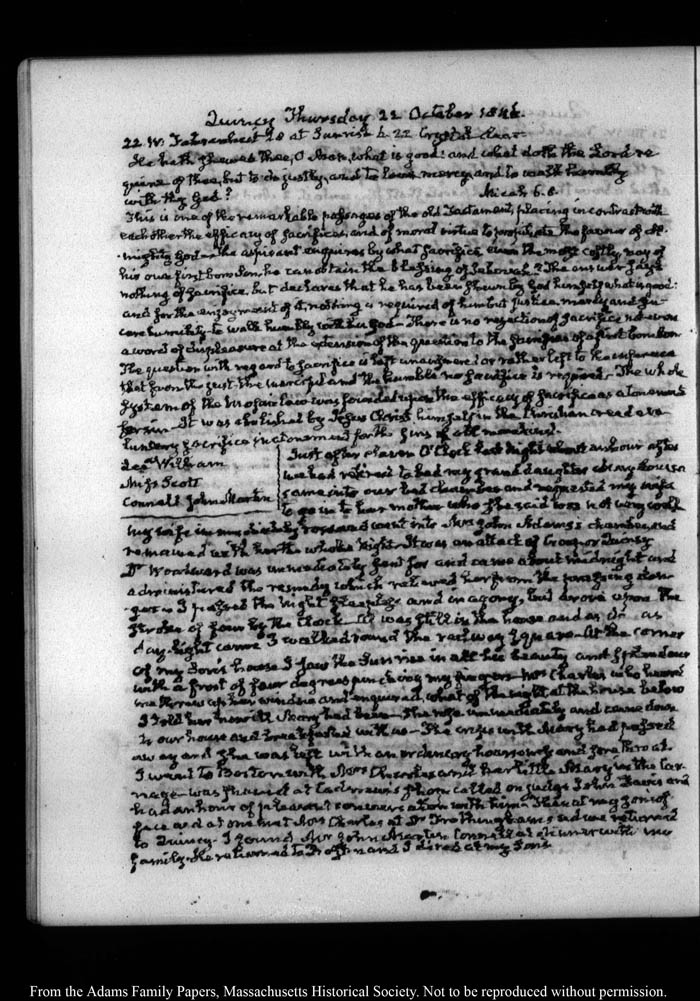 Quincy Thursday 22 October 1846.
22. IV. Fahrenheit 28 at Sunrise 6. 22 Crystal clear
He hath shewed thee, O Man, what is good: and what doth the Lord re
quire of thee, but to do justly, and to love mercy, and to walk humbly
with thy God? Micah 6. 8
This is one of the remarkable passages of the old Testament, placing in contrast with
each other the efficacy of sacrifices, and of moral virtue to propitiate the favour of Al-
mighty God. The aspirant enquires by what sacrifice even the most costly, nay of
his own first born Son, he can obtain the blessing of Jehovah? The answer says
nothing of sacrifice but declares that he has been shewn by God himself what is good:
and for the enjoyment of it, nothing is required of him but justice, mercy and sin
cere humility to walk humbly with his God. There is no rejection of sacrifice not even
a word of displeasure at the extension of the question to the sacrifice of a first born Son
The question with regard to sacrifice is left unanswered or rather left to the inference
that from the just the merciful and the humble no sacrifice is required. The whole
system of the Mosaic law was founded upon the efficacy of sacrifice as atonement
for sin. It was abolished by Jesus Christ himself in the Christian creed a vo
luntary sacrifice in atonement for the sins of all mankind.
William
Miss Scott
Connell John Martin
Just after eleven O'Clock last Night about an hour after
we had retired to bed my grand daughter Mary Louisa
came into our bed chamber and requested my wife
to go in to her mother who she said was not very well
my wife immediately rose and went into Mrs John Adams's chamber, and
remained with her the whole Night. It was an attack of croup or Quinsy
Dr Woodward was immediately sent for and came about midnight and
administered the remedy which relieved her from the pressing dan-
ger. I passed the Night sleepless and in agony, but arose upon the
stroke of four by the Clock. All was still in the house and as soon as
day-light came I walked round the railway square. At the corner
of my Son's house I saw the Sun rise in all his beauty and splendour
with a frost of four degrees pinching my fingers. Mrs Charles who heard
me threw up her window and enquired, what of the Night at the house below
I told her how ill Mary had been. She rose immediately and came down
to our house and breakfasted with us. The crisis with Mary had passed
away and she was left with an ordinary hoarseness and sore throat.
I went to Boston with Mrs Charles and her little Mary in the car-
riage was shaved at called on Judge John Davis and
had an hour of pleasant conversation with him. Then at my Son's of
fice and at one met Mrs Charles at Dr Frothingham's and we returned
to Quincy. I found Mr John Martin Connell at dinner with my
family. He returned to and I dined at my Sons
From the Adams Family Papers, Massachusetts Historical Society. Not to be reproduced without permission.